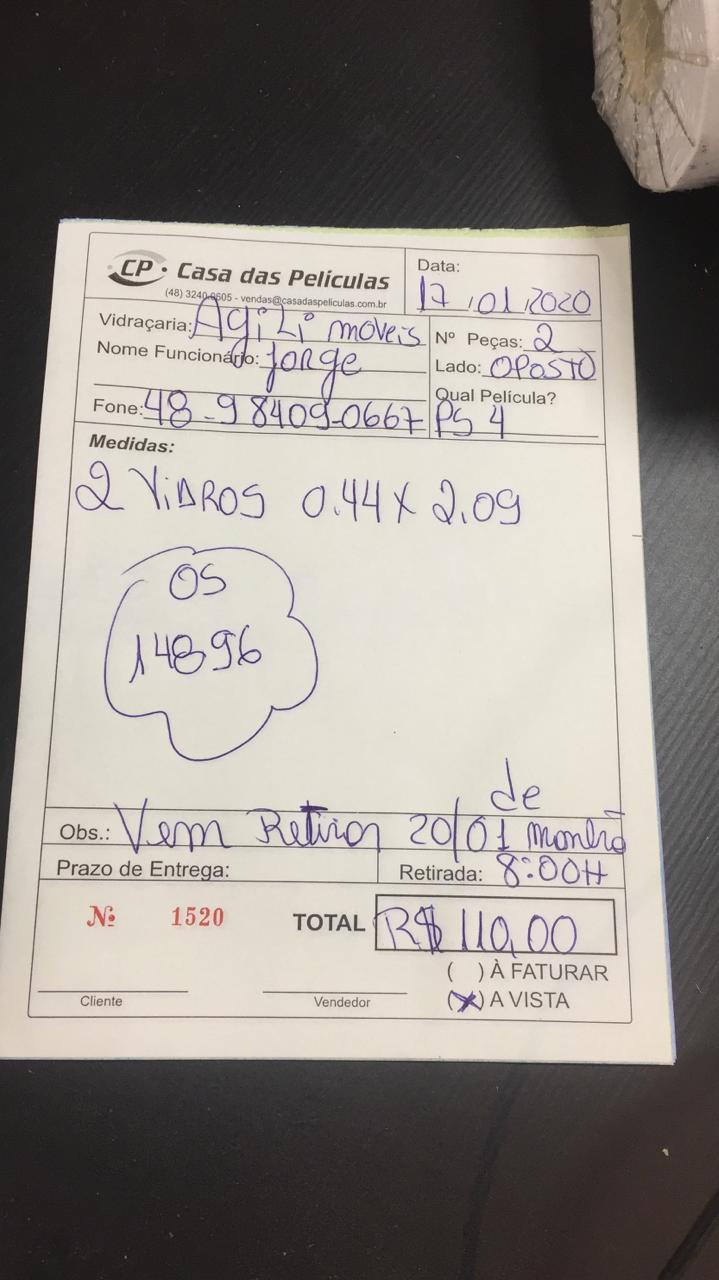 CP · Casa das Películas
(48) 3240-0605 - vendas@casadaspeliculas.com.br
Data: 17/01/2020
Vidraçaria: Agili moveis
Nome Funcionário: Jorge
Fone: 48-98409-0667
Nº Peças: 2
Lado: OPOSTO
Qual Película?
PS 4
Medidas:
2 ViDROS 0.44 X 2.09
OS
14896
de
Obs.: Vem Retirar 20/01 manhã
Prazo de Entrega:
Retirada: 8:00H
Nº 1520
TOTAL R$ 110,00
( ) À FATURAR
(X) A VISTA
Cliente
Vendedor